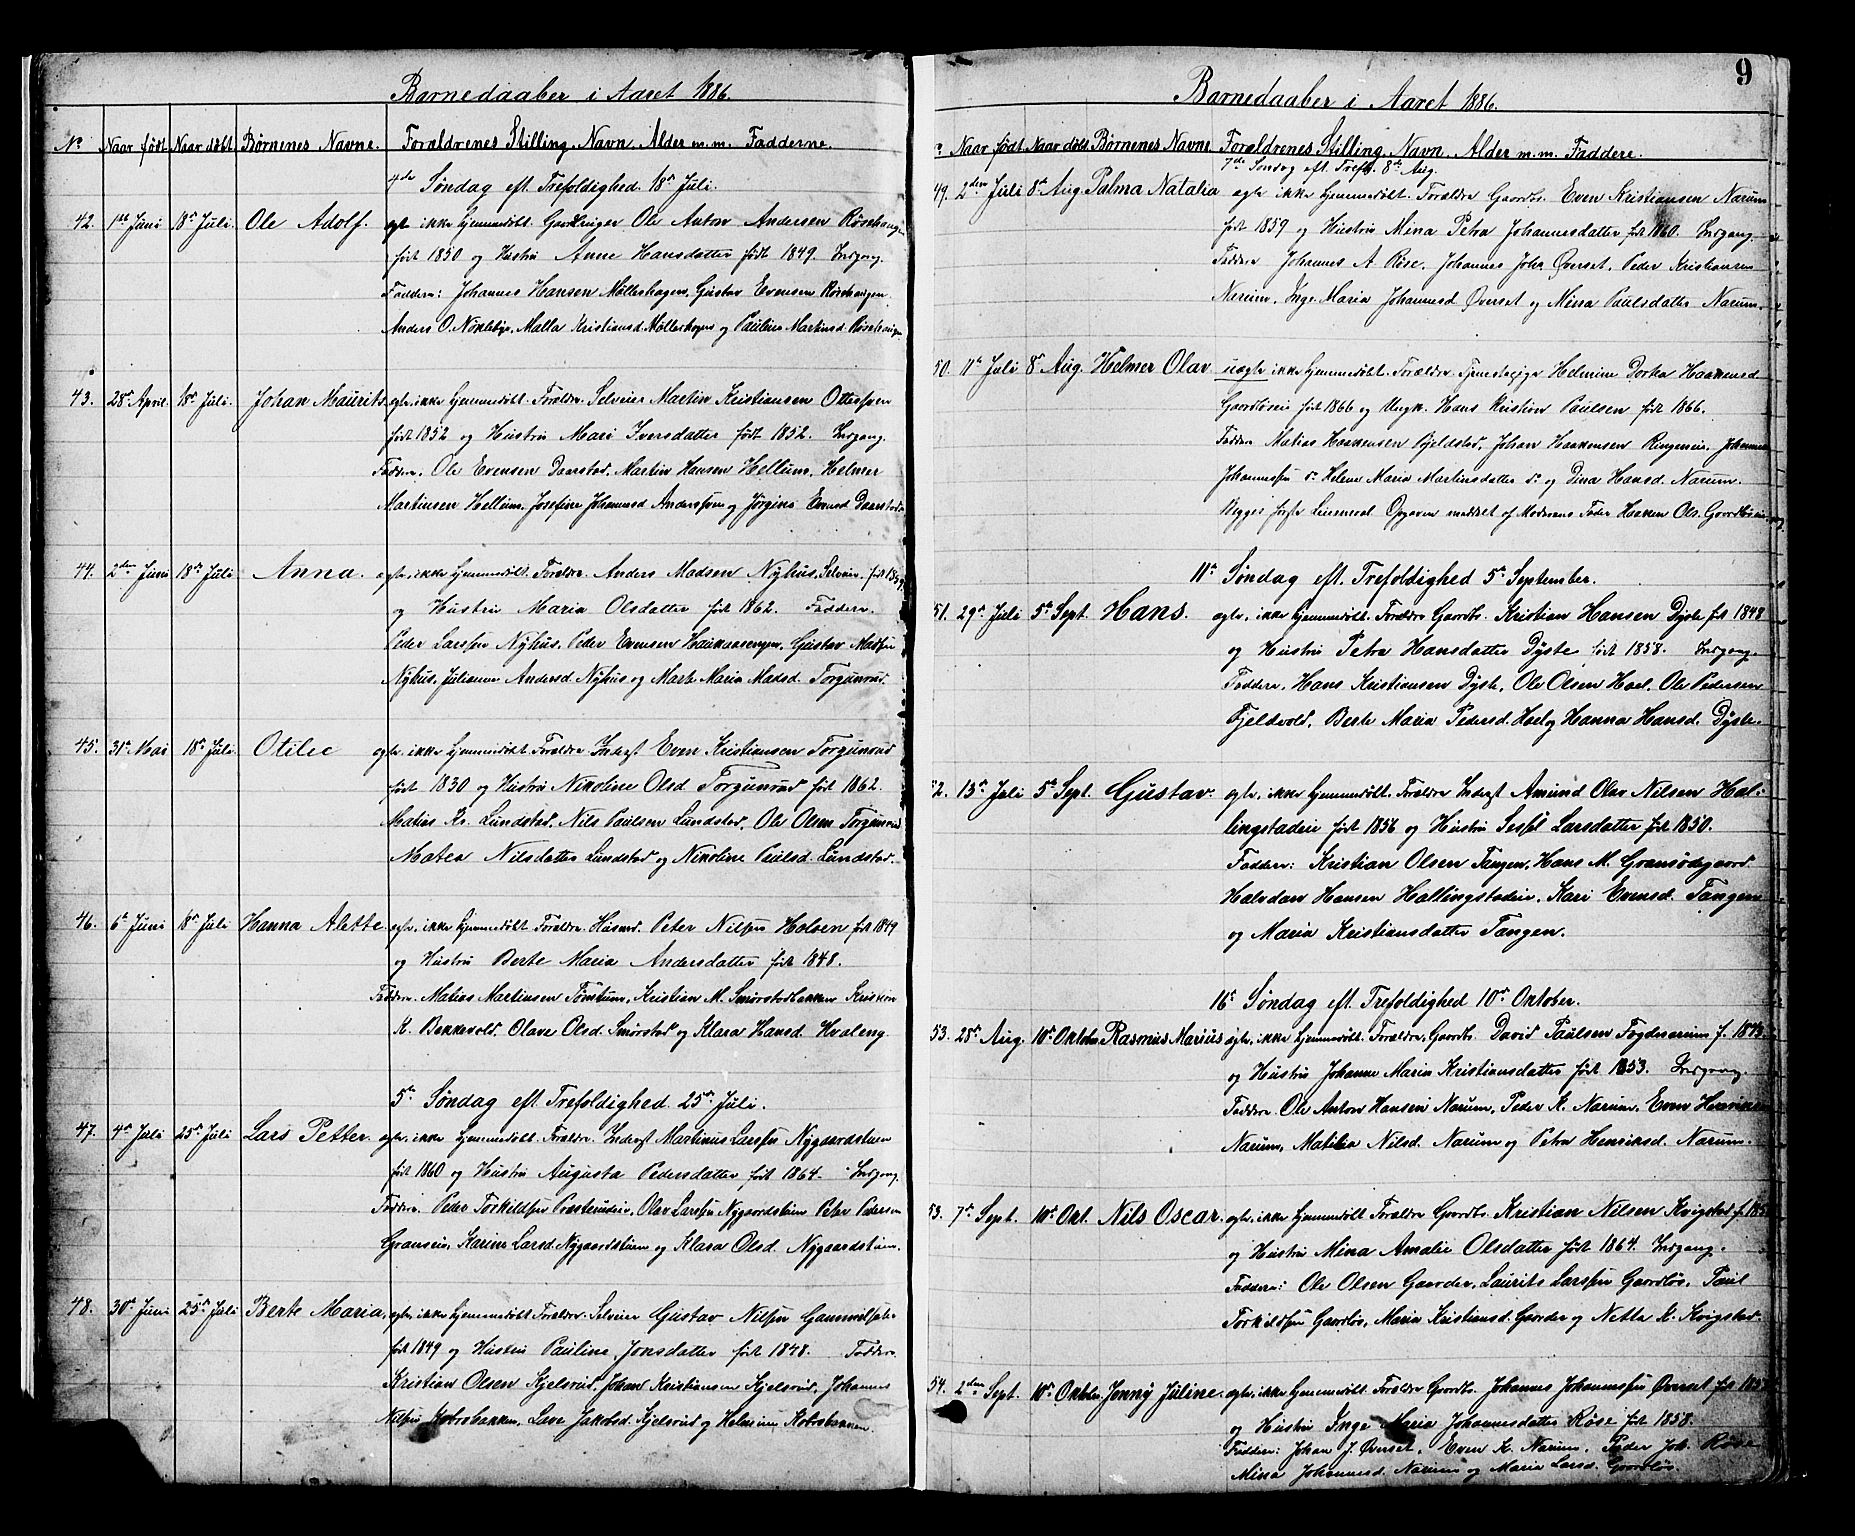 Barnedaaber i Aaret 1886.
No Naar født Naar døbt Børnenes Navne. Forældrenes Stilling, Navn, Alder m.m. Fadderne.
4de Søndag eft. Trefoldighed. 18de Juli.
42. 1ste Juni 18de Juli Ole Adolf. ægte ikke hjemmedøbt. Ole Anton Andersen Rösehaugen
født 1850 og Hustru Anne Hansdatter født 1849. Indgang.
Faddere: Johannes Hansen Møllerhagen, Gustav Evensen Rösehaugen
Anders O. Nøkleby, Malla Kristiansd. Møllerhagen og Pauline Martinsd. Rösehaugen
43. 28de April. 18de Juli. Johan Maurits. ægte, ikke hjemmedøbt. Forældre. Selveier Martin Kristiansen Ottessveen
født 1852 og Hustru Mari Iversdatter født 1852. Indgang.
Faddere. Ole Evensen Daarstad, Martin Hansen Hellum, Helmer
Martinsen Hellum, Josefine Johannesd. Anderssveen og Jørgine Evensd. Daarstad
44. 2den Juni 18de Juli Anna. ægte, ikke hjemmedøbt. Forældre. Anders Madsen Nyhus, Selveier, født
og Hustru Maria Olsdatter født 1862. Faddere.
Peder Larssen Nyhus, Peder Evensen Haukaasengen, Gustav Madssen
Nyhus, Julianne Andersd. Nyhus og Marte Maria Madsd. Torgunrud.
45. 31te Mai 18de Juli Otilie ægte ikke hjemmedøbt. Forældre Inderst Even Kristiansen Torgunrud
født 1830 og Hustru Nikoline Olsd. Torgunrud født 1862.
Matias Kr. Lundstad, Nils Paulsen Lundstad, Ole Olsen Torgunrud
Matea Nilsdatter Lundstad og Nikoline Paulsd. Lundstad.
46. 6te Juni 18de Juli Hanna Alette. ægte, ikke hjemmedøbt. Forældre. Husmd. Peter Nilsen Holoen født 1849
og Hustru Berte Maria Andersdatter født 1848.
Faddere. Matias Martinsen Tømtum, Kristian M. Smørstadbakken Kristian
K. Bakkevold, Olave Olsd. Smørstad og Klara Hansd. Hvaleng.
5te Søndag eft. Trefoldighed. 25de Juli.
47. 4de Juli 25de Juli Lars Petter. ægte, ikke hjemmedøbt. Forældre. Inderst Martinus Larssen Nygaardstuen
født 1860 og Hustru Augusta Pedersdatter født 1864. Indgang.
Faddere. Peder Torkildsen Olav Larssen Nygaardstuen Peter Pedersen
Granseie, Karine Larsd. Nygaardstuen og Klara Olsd. Nygaardstuen.
48. 30te Juni 25de Juli Berte Maria. ægte, ikke hjemmedøbt. Forældre. Selveier Gustav Nilsen
født 1849 og Hustru Pauline Jonsdatter født 1848. Faddere.
Kristian Olsen Kjelsrud, Johan Kristiansen Kjelsrud, Johannes
Nilsen Lave Jakobsd. Kjelsrud og
Barnedaaber i Aaret 1886.
9
Naar født Naar døbt Børnenes Navne Forældrenes Stilling, Navn, Alder m.m. Faddere.
7de Søndag eft. Trefold. 8de Aug.
49. 2den Juli 8de Aug. Palma Natalia ægte ikke hjemmedøbt. Forældre Gaardbr. Even Kristiansen Narum
født 1859 og Hustru Mina Petra Johannesdatter født 1860. Indgang.
Faddere Johannes A Röse, Johannes Johs Øverset, Peder Kristiansen
Narum, Inge Maria Johannesd Øverset og Mina Paulsdatter Narum.
50. 11te Juli 8de Aug. Helmer Olav. uægte ikke hjemmedøbt. Forældre Tjenestepige Helmine Dortea Haakensd
Gaardløseie født 1866 og Ungk. Hans Kristian Paulsen født 1866.
Faddere Matias Haakensen Bjeldstad, Johan Haakensen Ringeneie, Johannes
Johannessen do Helene Maria Martinsdatter do og Dina Hansd. Narum.
Begges første Leiermaal Opgaven meddelt af Moderens Fader Haaken Ols. Gaardløseie
11te Søndag eft. Trefoldighed 5te September.
51. 29de Juli 5te Sept. Hans. ægte, ikke hjemmedøbt. Forældre Gaardbr. Kristian Hansen Dyste født 1848
og Hustru Petra Hansdatter Dyste født 1858. Indgang.
Faddere, Hans Kristiansen Dyste, Ole Olsen Hoel, Ole Pedersen
Fjeldvold, Berte Maria Pedersd. Hoel og Hanna Hansd. Dyste.
52. 13de Juli 5te Sept. Gustav. ægte, ikke hjemmedøbt. Forældre Inderst Amund Olav Nilsen Hal-
lingstadeie født 1856 og Hustru Larsdatter født 1850.
Faddere: Kristian Olsen Tangen, Hans M. Gransødegaard
Halvdan Hansen Hallingstadeie, Kari Evensd. Tangen
og Maria Kristiansdatter Tangen.
16de Søndag eft. Trefoldighed 10de Oktober.
53. 28de Aug. 10de Oktober Rasmus Marius ægte, ikke hjemmedøbt. Forældre, Gaardbr. David Paulsen Fogdnarum f. 1843.
og Hustru Johanne Maria Kristiansdatter født 1853. Indgang.
Faddere Ole Anton Hansen Narum, Peder K. Narum, Even
Narum, Matilda Nilsd. Narum og Petra Henriksd. Narum.
53. 7de Sept. 10de Okt. Nils Oscar. ægte, ikke hjemmedøbt Forældre Gaardbr. Kristian Nilsen Kvigstad
og Hustru Mina Amalie Olsdatter født 1864. Indgang.
Faddere: Ole Olsen Gaarder, Laurits Larssen Gaardløs, Paul
Torkildsen Gaardløs, Maria Kristiansd. Gaarder og Netta K. Kvigstad.
54. 2den Sept. 10de Oktober Jenny Juline. ægte, ikke hjemmedøbt Forældre Gaardbr. Johannes Johannessen Øverset
og Hustru Inge Maria Johannesdatter Röse født 1858.
Faddere: Johan J. Øverset, Even K. Narum, Peder Joh. Röse
Mina Johannesd. Narum og Maria Larsd. Gaardløs.